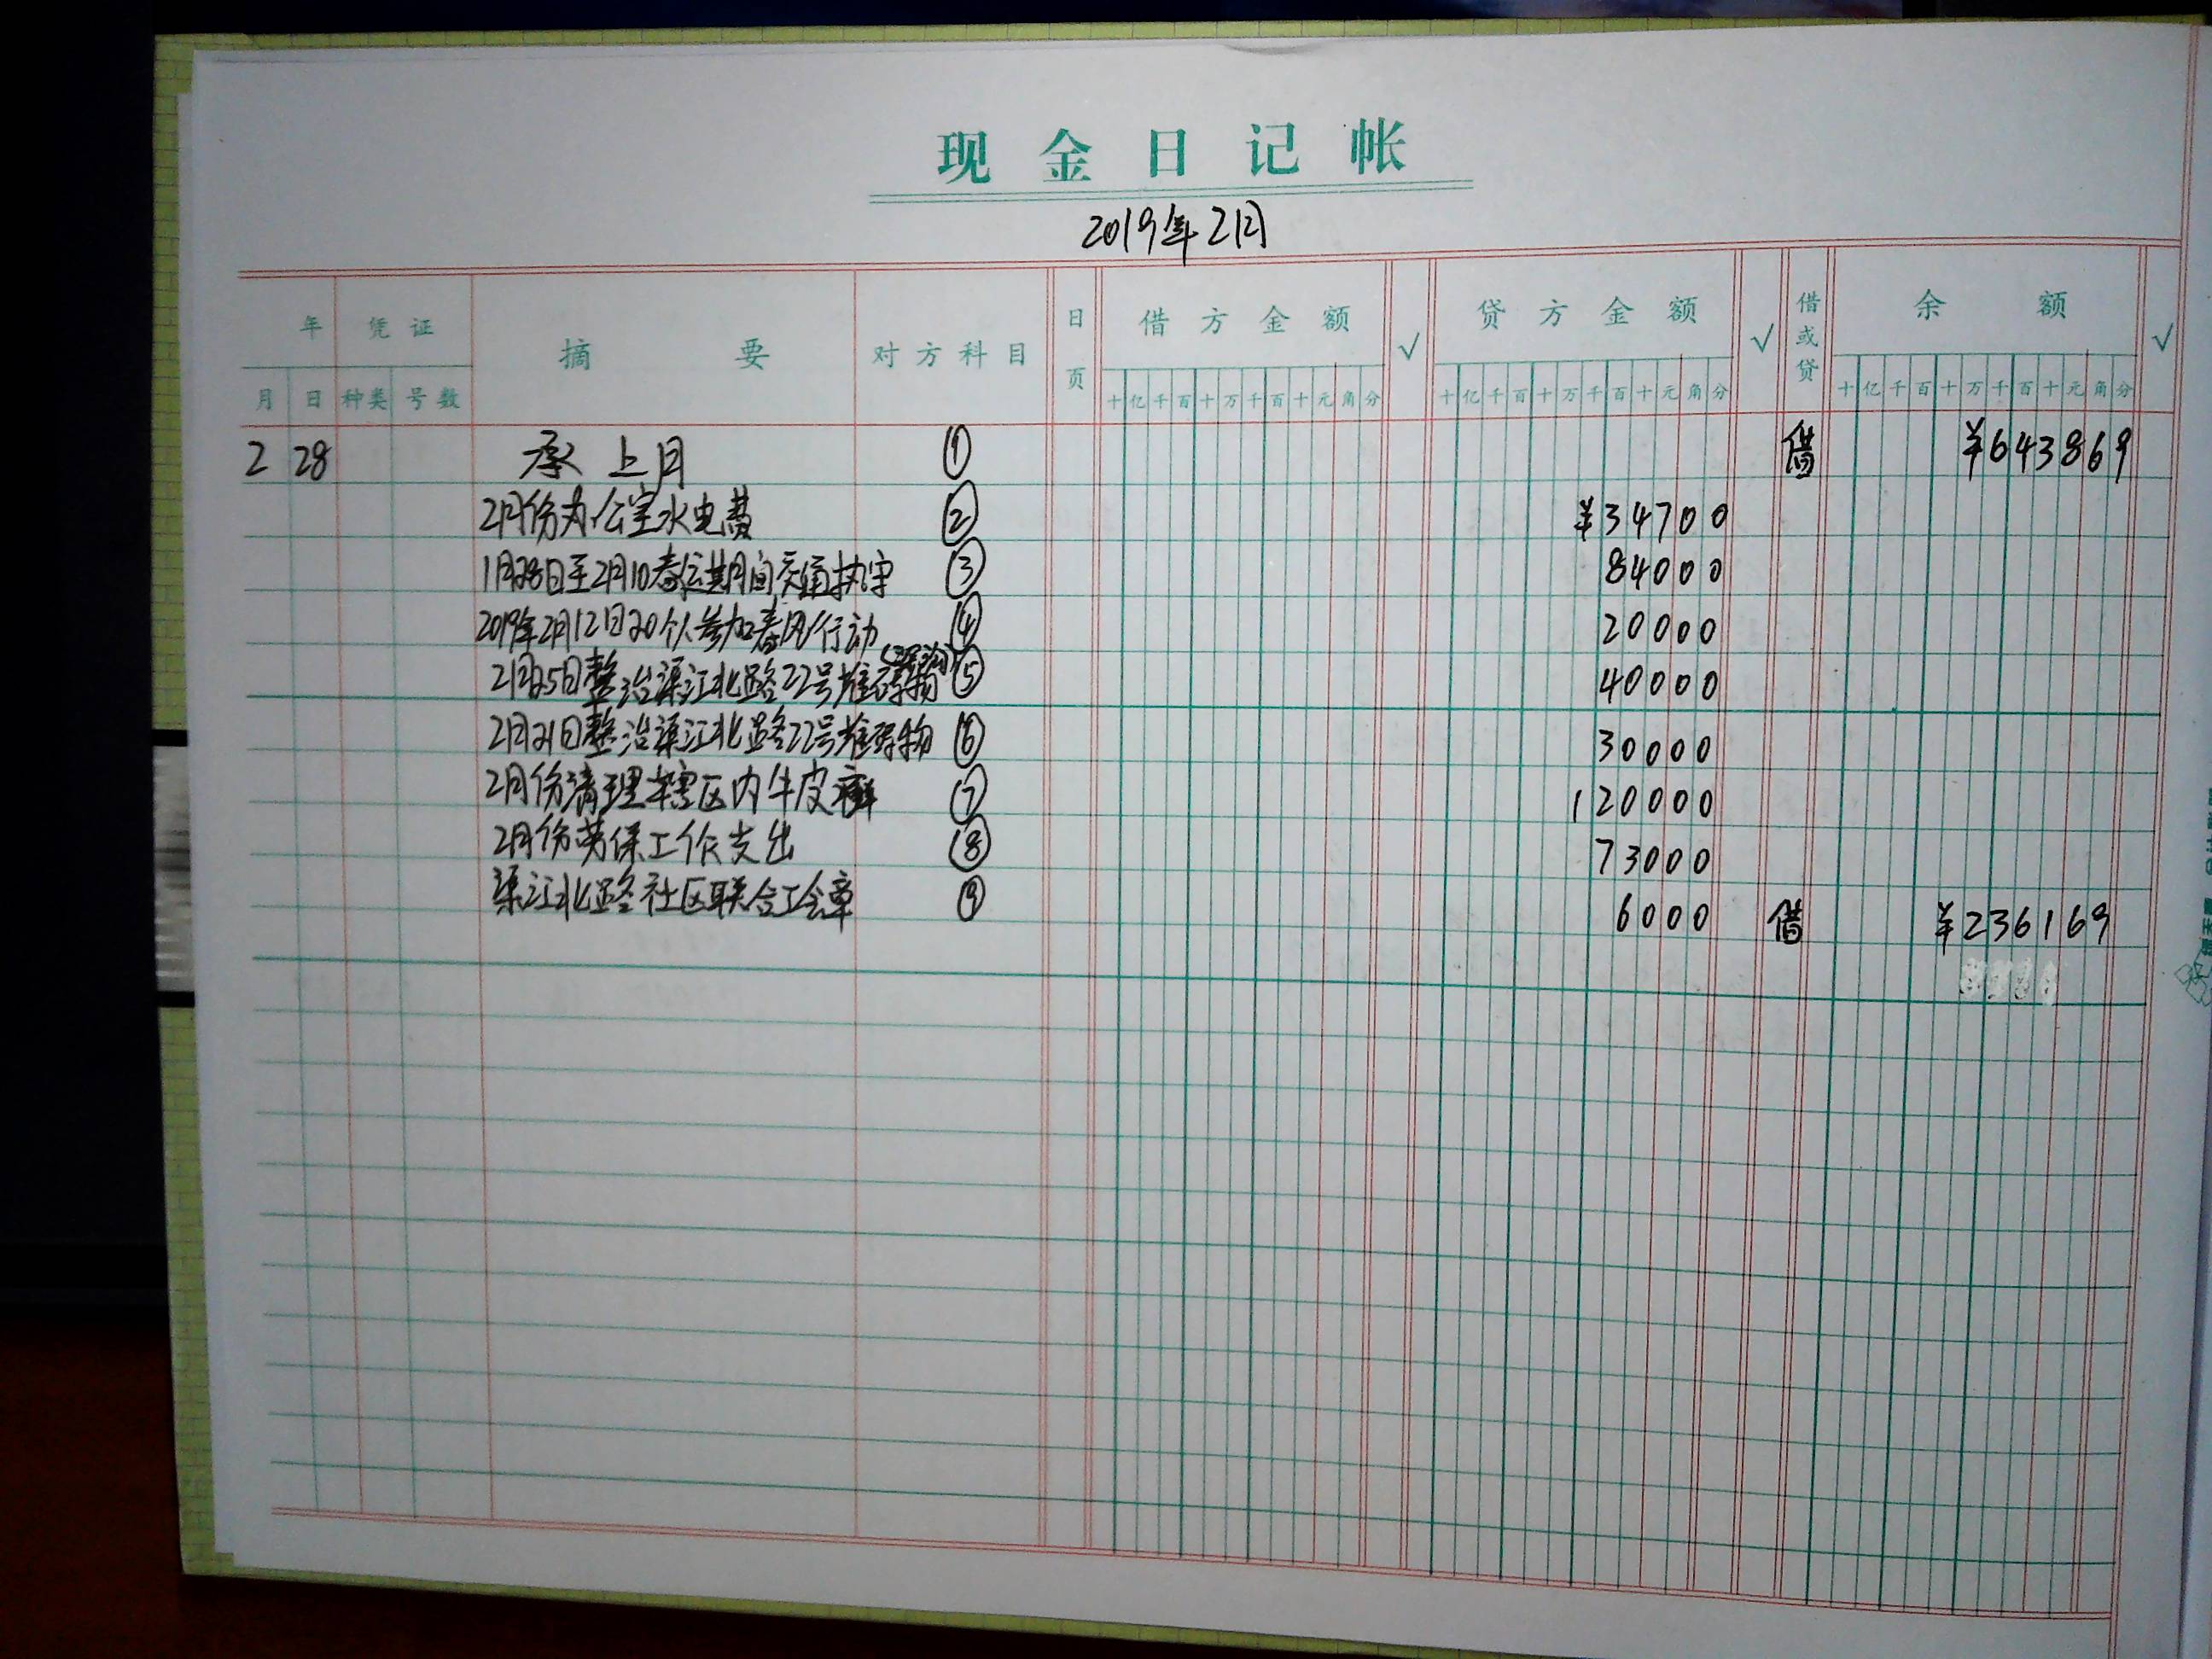 现金日记帐
2019年2月
年 凭证 摘要 对方科目 日页 借方金额 √ 贷方金额 √ 借或贷 余额 √
月 日 种类 号数 十亿千百十万千百十元角分 十亿千百十万千百十元角分 十亿千百十万千百十元角分
2 28 承上月 ① 借 ¥643869
2月份办公室水电费 ② ¥34700
1月28日至2月10春运期间交通执守 ③ 84000
2019年2月12日20个人参加春风行动 ④ 20000
2月25日整治渠江北路22号堆碍物 ⑤ 40000
2月21日整治渠江北路22号堆碍物 ⑥ 30000
2月份清理辖区内牛皮癣 ⑦ 120000
2月份劳保工作支出 ⑧ 73000
渠江北路社区联合工会章 ⑨ 6000 借 ¥236169